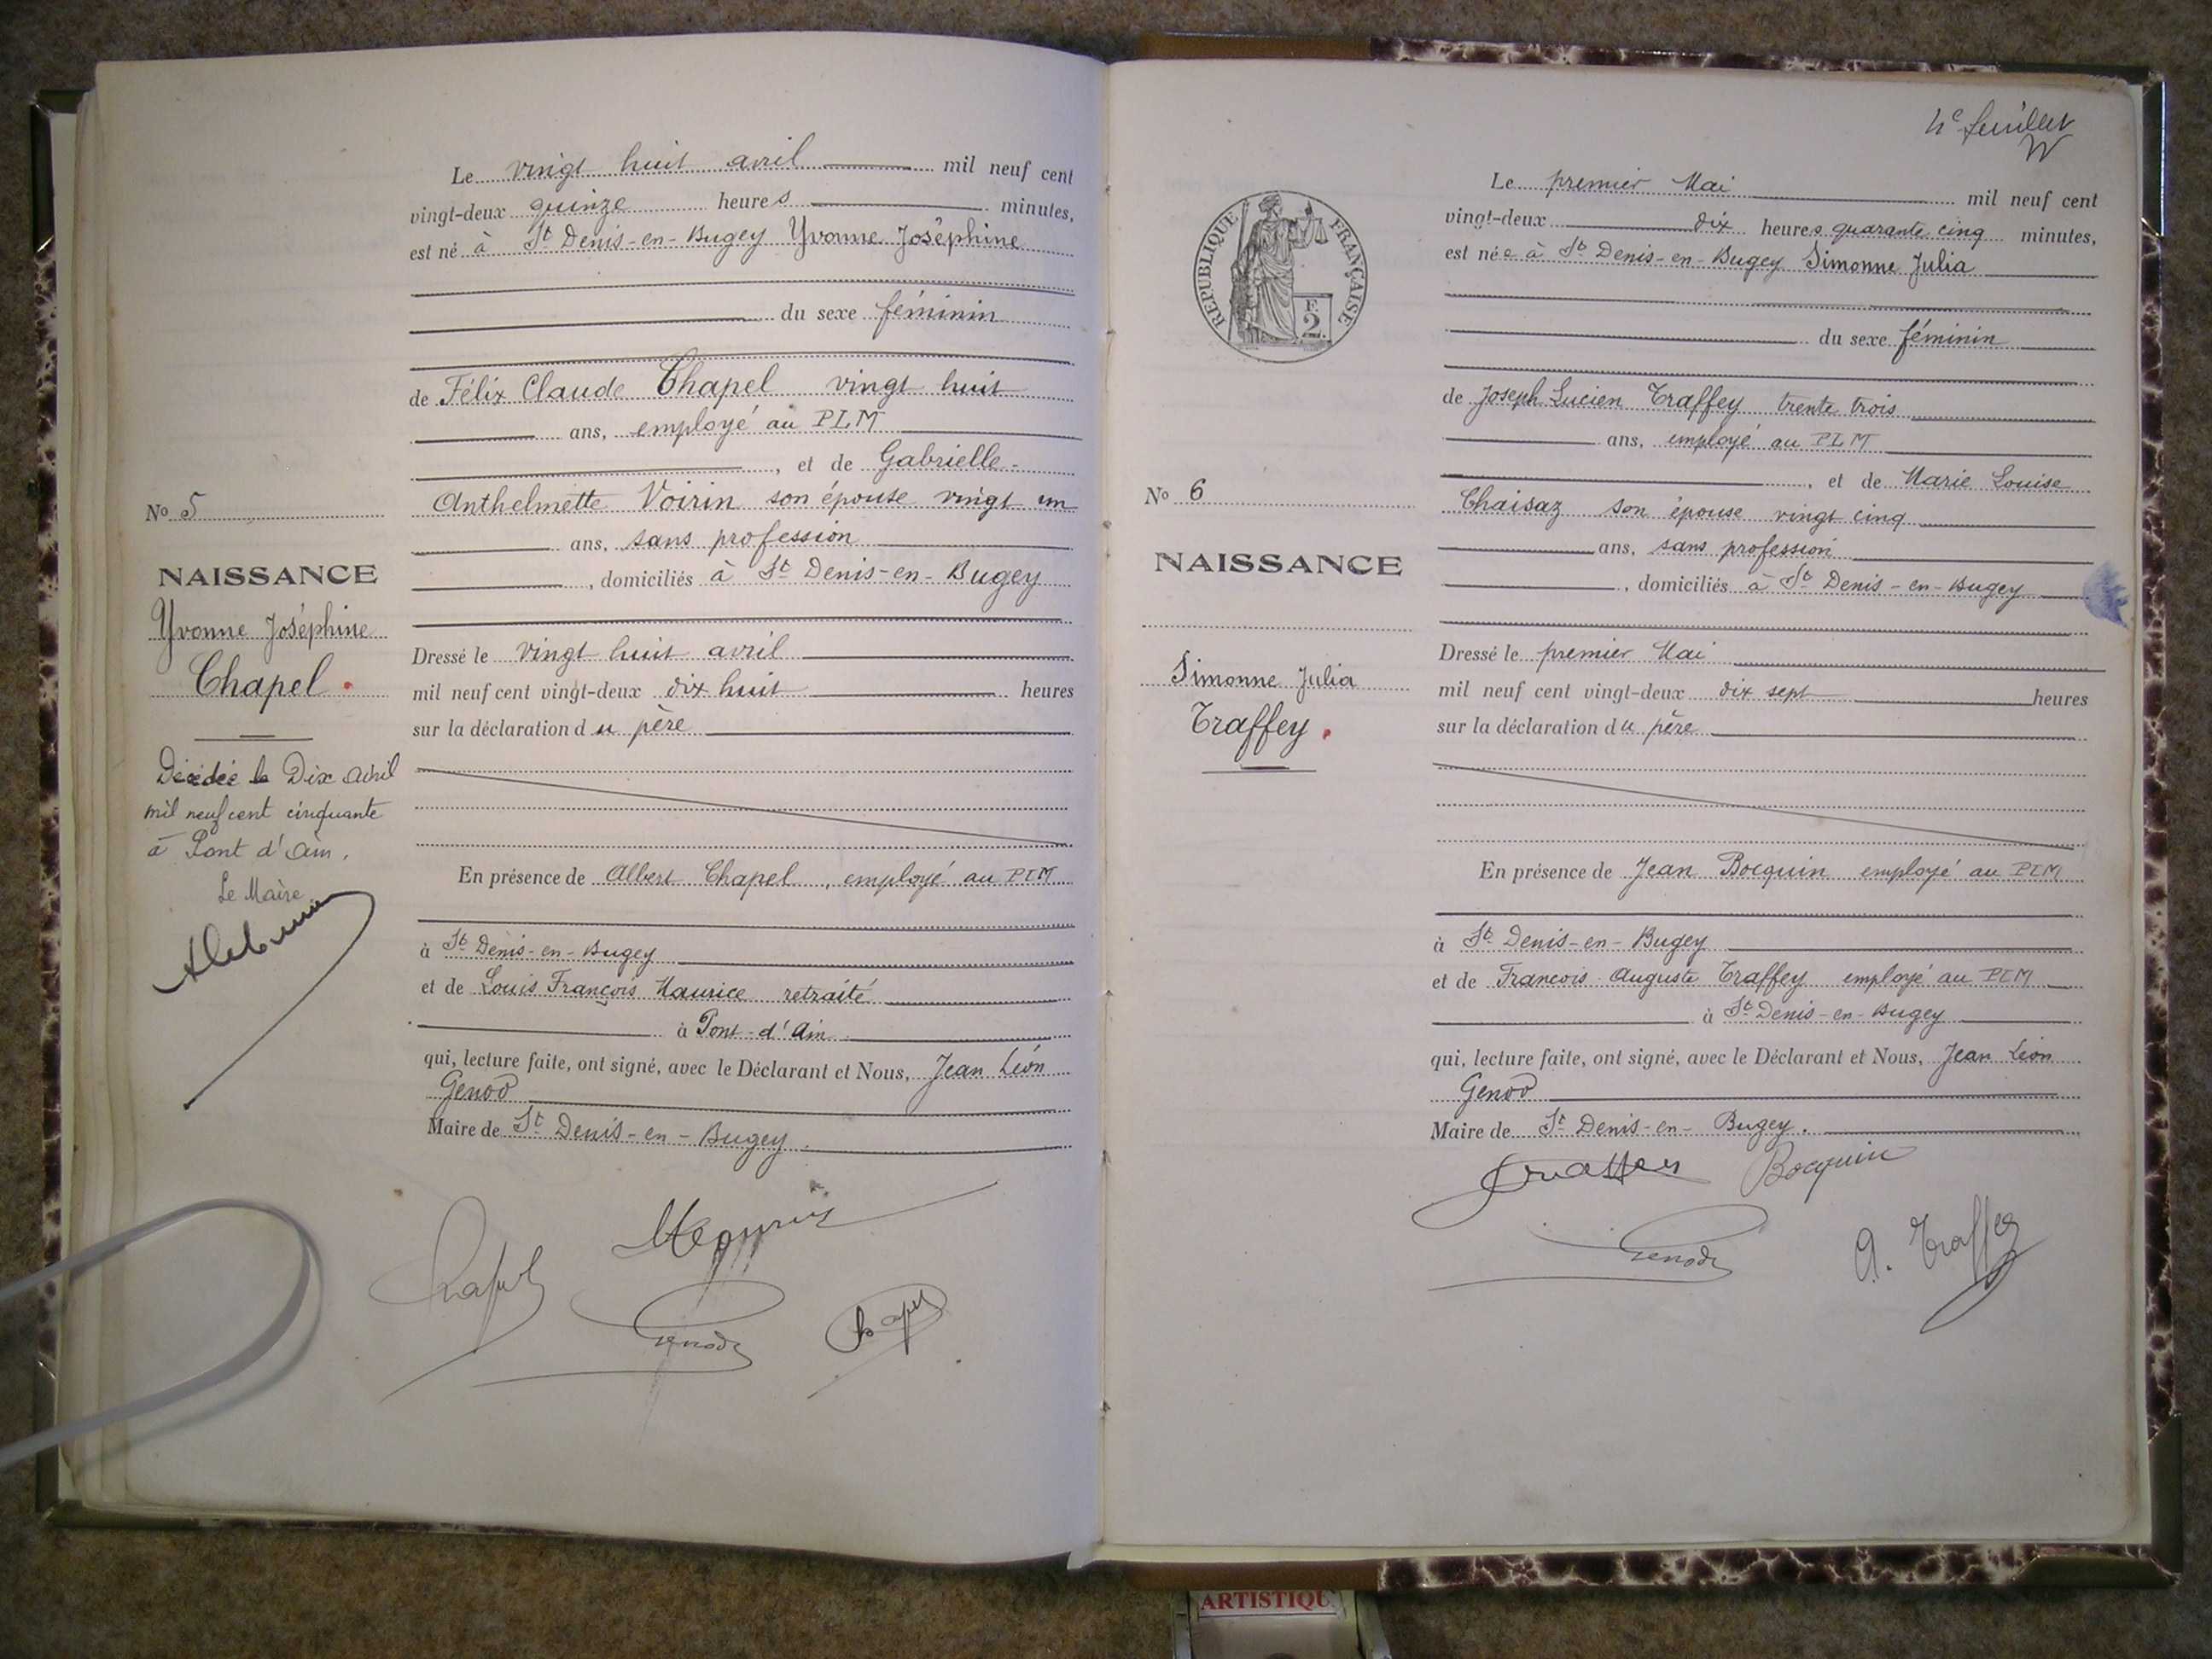 Le vingt huit avril mil neuf cent
vingt-deux quinze heures minutes,
est né à St Denis-en-Bugey Yvonne Joséphine
du sexe féminin
de Félix Claude Chapel vingt huit
ans, employé au PLM
, et de Gabrielle-
Anthelmette Voirin son épouse vingt un
ans, sans profession
, domiciliés à St Denis-en-Bugey
Dressé le vingt huit avril
mil neuf cent vingt-deux dix huit heures
sur la déclaration du père
En présence de Albert Chapel, employé au PLM
à St Denis-en-Bugey
et de Louis François Maurice retraité
à Pont-d'Ain
qui, lecture faite, ont signé, avec le Déclarant et Nous, Jean Léon
Genod
Maire de St Denis-en-Bugey.
Genod
Chapel
No 5
NAISSANCE
Yvonne Joséphine
Chapel
Décédée le Dix avril
mil neuf cent cinquante
à Pont d'Ain.
Le Maire
4e feuillet
Le premier Mai mil neuf cent
vingt-deux dix heures quarante cinq minutes,
est née à St Denis-en-Bugey Simonne Julia
du sexe féminin
de Joseph Lucien Traffey trente trois
ans, employé au PLM
, et de Marie Louise
Chaisaz son épouse vingt cinq
ans, sans profession
, domiciliés à St Denis-en-Bugey
Dressé le premier Mai
mil neuf cent vingt-deux dix sept heures
sur la déclaration du père
En présence de Jean Bocquin employé au PLM
à St Denis-en-Bugey
et de Francois Auguste Traffey employé au PLM
à St Denis-en-Bugey
qui, lecture faite, ont signé, avec le Déclarant et Nous, Jean Léon
Genod
Maire de St Denis-en-Bugey.
Bocquin
Genod
A. Traffey
REPUBLIQUE FRANÇAISE
F.
2
No 6
NAISSANCE
Simonne Julia
Traffey.
ARTISTIQU